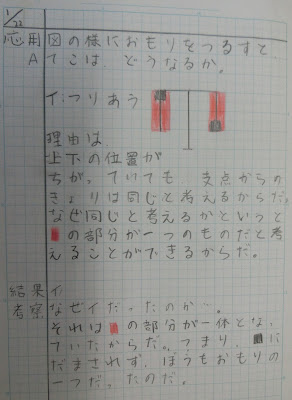 1/22
応用 図の様におもりをつるすと
A てこは、どうなるか。
イ:つりあう
理由は
上下の位置が
ちがっていても 支点からの
きょりは同じと考えるからだ。
なぜ同じと考えるかというと
の部分が一つのものだと考
えることができるからだ。
結果 イ
考察 なぜイだったのか…。
それは の部分が一体とな
ていたからだ。つまり、 に
だまされず、ぼうもおもりの
一つだったのだ。